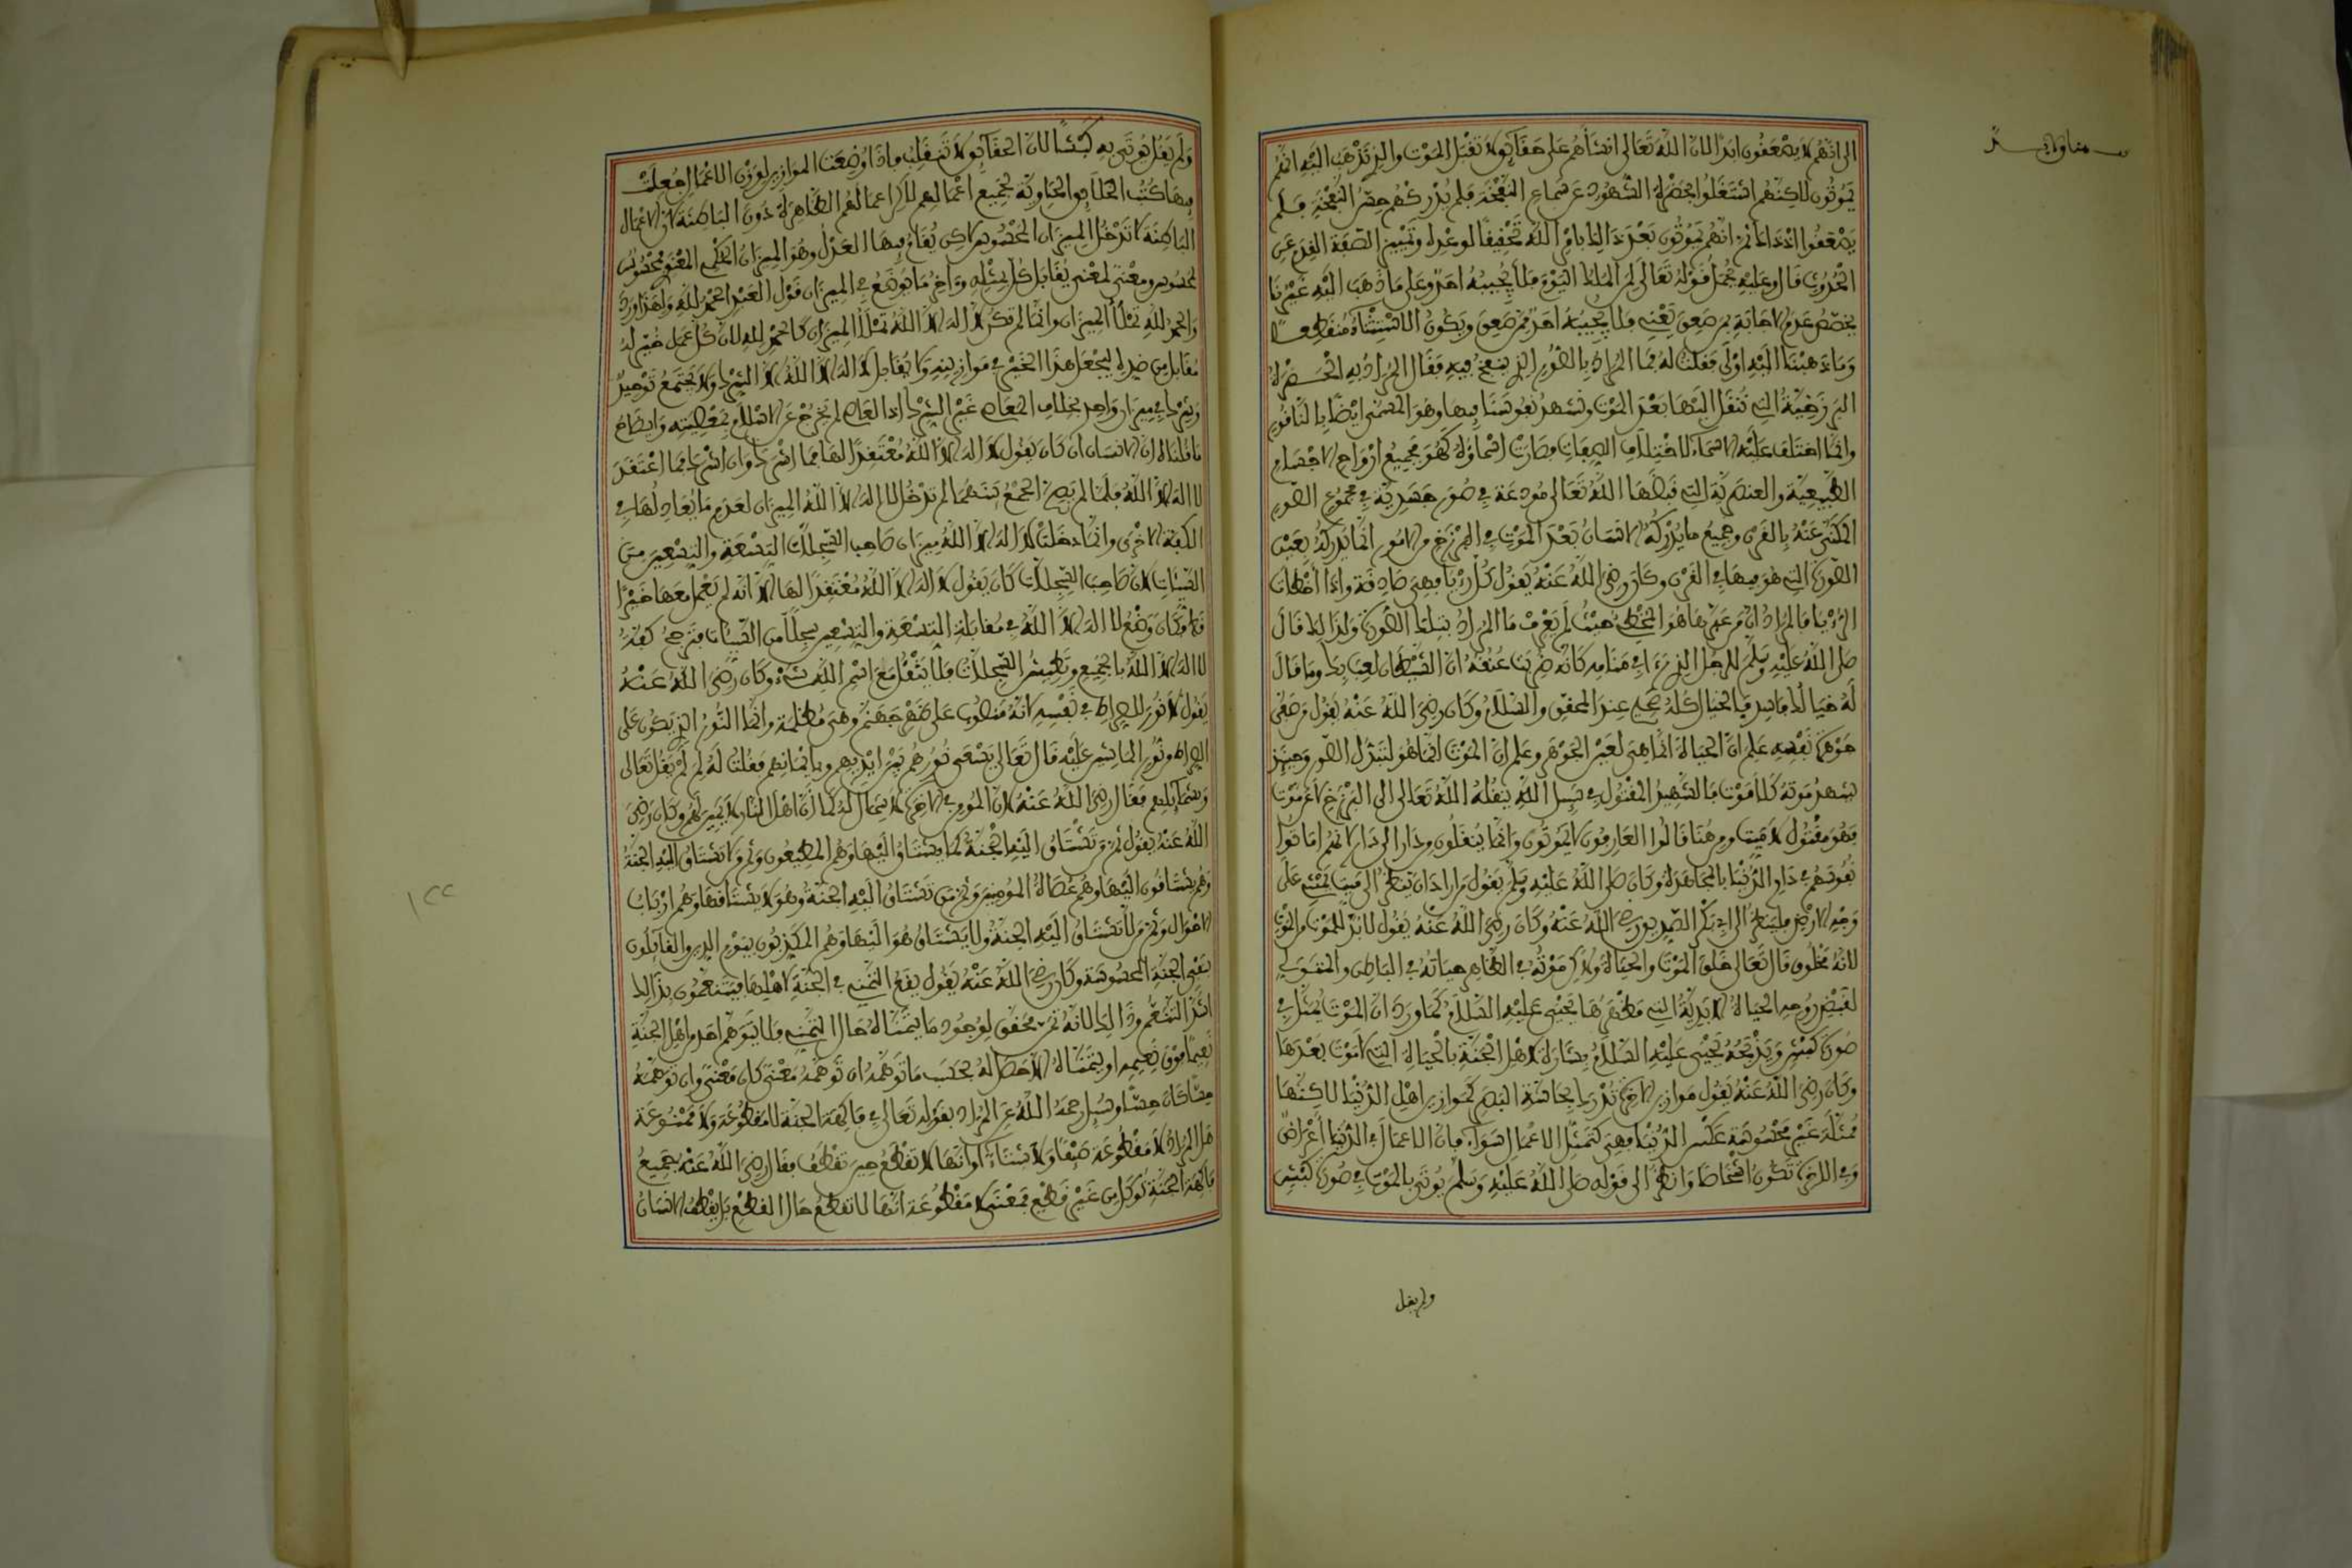 الى انهم لا يصعقون ابدا لان الله تعالى انشأهم على حقائق لا تقبل الموت والذي نذهب اليه انهم
يموتون لاكنهم اشتغلوا بحضرة الشهود عن سماع النفخة فلم يدركهم حكم النفخة فلم
يصعقوا اذ ذاك ثم انهم يموتون بعد ذالك بامر الله تحقيقا لوعده وتمييز الصفة القدم عن
الحدوث قال وعليه يحمل قوله تعالى لمن الملك اليوم فلا يجيبه احد وعلى ما ذهب اليه غيرنا
يخصص عدم الاجابة بمن صعق يعني فلا يجيبه احد ممن صعق ويكون الاستثناء منقطعا
وما ذهبنا اليه اولى فقلت له فما المراد بالصور الذي ينفخ فيه فقال المراد به الحضرة
البرزخية التي ننقل اليها بعد الموت ونشهد نفوسنا فيها وهو المسمى ايضا بالناقور
وانما اختلف عليه الاسماء لاختلاف الصفات فصارت اسماؤه كهو فجميع ارواح الاجسام
الطبيعية والعنصرية التي قبضها الله تعالى مودعة في صور جسدية في مجموع الصور
المكنى عنه بالقرن وجميع ما يدركه الانسان بعد الموت في البرزخ من الامور انما يدركه بعين
الصورة التي هو فيها في القرن وكان رضي الله عنه يقول كل رؤيا فهي صادقة واذا اخطات
الرؤيا فالمراد ان من عبرها هو المخطئ حيث لم يعرف ما المراد بتلك الصورة ولذالك قال
صلى الله عليه وسلم للرجل الذي رءا في منامه كانه ضربت عنقه ان الشيطان لعب بك وما قال
له خيالك فاسد فالخيال كله صحيح عند المحقق والسلام وكان رضي الله عنه يقول من صفى
جوهرة نفسه علم ان الحياة انما هي لعين الجوهر وعلم ان الموت انما هو لتبدل الصور وحينئذ
يشهد موته كلا موت فالشهيد المقتول في سبيل الله ينقله الله تعالى الى البرزخ لا عن موت
فهو مقتول لا ميت ومن هنا قالوا العارفون لا يموتون وانما ينقلون من دار الى دار لانهم اماتوا
نفوسهم في دار الدنيا بالمجاهدة وكان صلى الله عليه وسلم يقول من اراد ان ينظر الى ميت يمشي على
وجه الارض فلينظر الى ابي بكر الصديق رضي الله عنه وكان رضي الله عنه يقول لا بد للموت من الموت
لانه مخلوق قال تعالى خلق الموت والحياة ولاكن موته في الظاهر حياته في الباطن والمتولي
لقبض روحه الحياة الابدية التي مظهرها يحيى عليه السلام كما ورد ان الموت يمثل في
صورة كبش ويذبحه يحيى عليه السلام بشارة لاهل الجنة بالحياة التي لا موت بعدها
وكان رضي الله عنه يقول موازين الاخرة تدرك بحاسة البصر كموازين اهل الدنيا لاكنها
ممثلة غير محسوسة عكس الدنيا فهي كتمثل الاعمال سواء فان الاعمال في الدنيا اعراض
وفي الاخرة تكون اشخاصا وانظر الى قوله صلى الله عليه وسلم يؤتى بالموت في صورة كبش
ولم يقل
ولم يقل يؤتى به كبشا لان الحقائق لا تنقلب فاذا وضعت الموازين لوزن الاعمال جعلت
فيها كتب الخلائق الحاوية لجميع اعمالهم لاكن اعمالهم الظاهرة دون الباطنة لان الاعمال
الباطنة لا تدخل الميزان المحسوس لاكن يقام فيها العدل وهو الميزان الحكمي المعنوي فمحسوس
لمحسوس ومعنى لمعنى يقابل كل بمثله وءاخر ما يوضع في الميزان قول العبد الحمد لله ولهذا ورد
والحمد لله تملأ الميزان وانما لم تكن لا اله الا الله تملأ الميزان كالحمد لله لان كل عمل خير له
مقابل من ضده ليجعل هذا الخير في موازينه ولا يقابل لا اله الا الله الا الشرك ولا يجتمع توحيد
وشرك في ميزان واحد بخلاف المعاصي غير الشرك اذ العاصي لم يخرج عن الاسلام بمعصيته وايضاح
ما قلناه ان الانسان ان كان يقول لا اله الا الله معتقدا لها فما اشرك وان اشرك فما اعتقد
لا اله الا الله فلما لم يصح الجمع بينهما لم تدخل لا اله الا الله الميزان لعدم ما يعادلها في
الكفة الاخرى وانما دخلت لا اله الا الله ميزان صاحب السجلات التسعة والتسعين من
السيئات لان صاحب السجلات كان يقول لا اله الا الله معتقدا لها الا انه لم يعمل معها خيرا
قط فكان وضع لا اله الا الله في مقابلة التسعة والتسعين سجلا من السيئات فترجح كفة
لا اله الا الله بالجميع وتطيش السجلات فلا يثقل مع اسم الله شيء وكان رضي الله عنه
يقول لا نور للصراط في نفسه لانه منصوب على ظهر جهنم وهي مظلمة وانما النور الذي يكون على
الصراط من نور الماشين عليه قال تعالى يسعى نورهم بين ايديهم وبايمانهم فقلت له لم لم يقل تعالى
وشمائلهم فقال رضي الله عنه لان المومن في الاخرة لا شمال له كما ان اهل النار لا يمين لهم وكان رضي
الله عنه يقول ثم من تشتاق اليه الجنة كما يشتاق اليها وهم المطيعون وثم من لا تشتاق اليه الجنة
وهم يشتاقون اليها وهم عصاة المومنين وثم من تشتاق اليه الجنة وهو لا يشتاقها وهم ارباب
الاحوال وثم من لا تشتاق اليه الجنة ولا يشتاق هو اليها وهم المكذبون بيوم الدين والقائلون
بنفي الجنة المحسوسة وكان رضي الله عنه يقول يقع التمني في الجنة لاهلها فيتنعمون بذالك
اشد التنعم وذالك لانه تمن محقق لوجود ما يتمناه حال التمني فلا يتوهم احد من اهل الجنة
نعيما فوق نعيمه او يتمناه الا حصل له بحسب ما توهمه ان توهمه معنى كان معنى وان توهمه
حسا كان حسا وسئل رحمه الله عن المراد بقوله تعالى في فاكهة الجنة لا مقطوعة ولا ممنوعة
هل المراد لا مقطوعة صيفا ولا شتاء او انها لا تقطع حين تقطف فقال رضي الله عنه جميع
فاكهة الجنة توكل من غير قطع فمعنى لا مقطوعة انها لا تقطع حال القطع بل يقطف الانسان
١٢٢